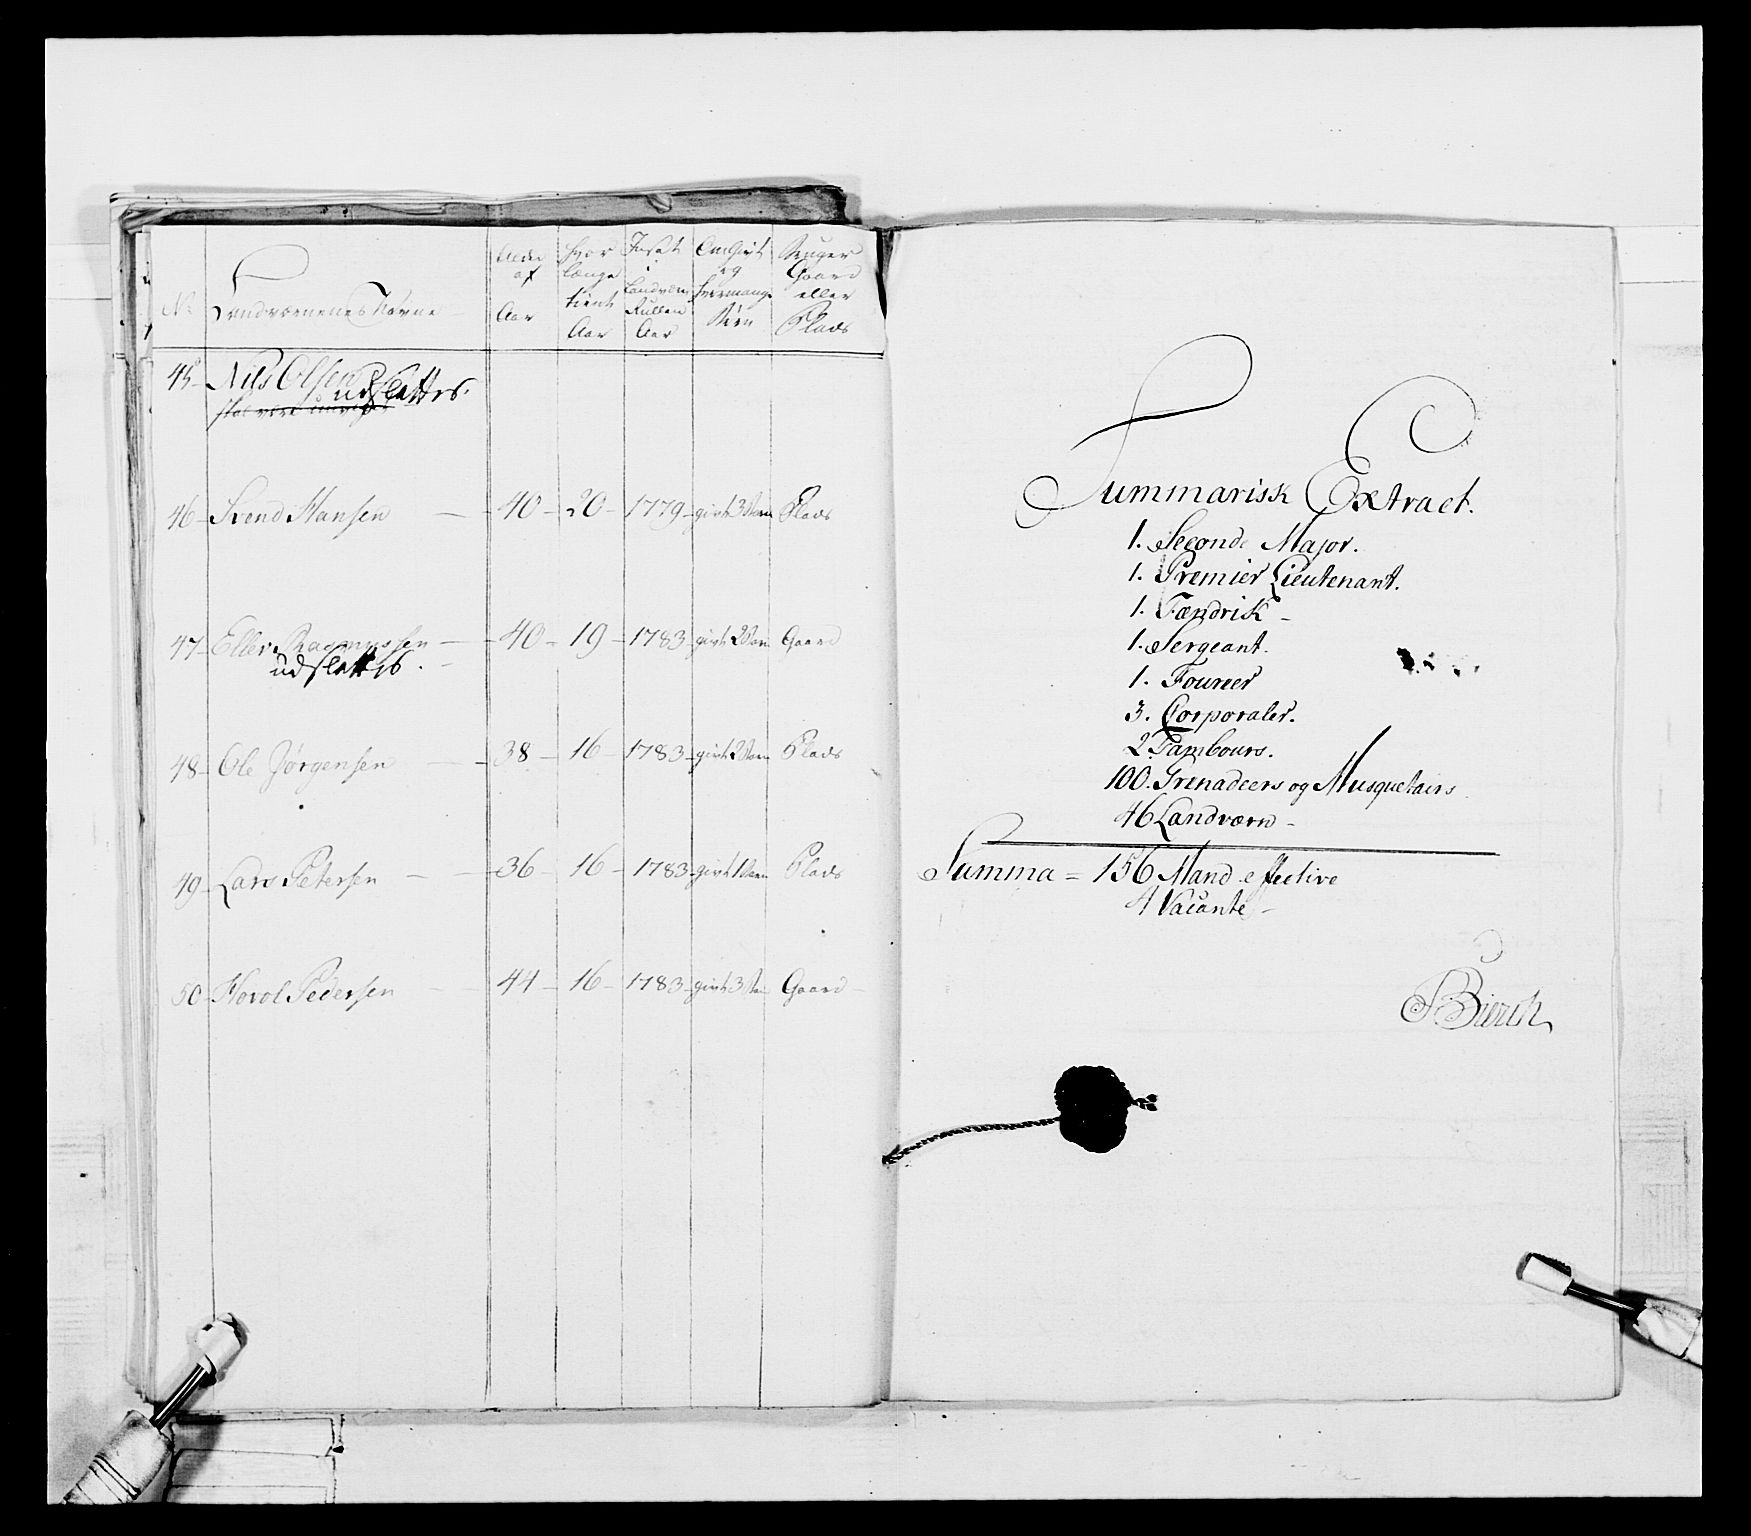 No Landværnenes Navne
Alder af Aar
Hvor længe tient Aar
Indsat i Landværn Rullen Aar
Om Givt og hvormange Børn
Bruger Gaard eller Plads
45 Nils Olsen udslettes.
skal være
46 Svend Hansen 40 20 1779 givt 3 Børn Plads
47 Ellev Rasmussen 40 19 1783 givt 2 Børn Gaard
udslettes.
48 Ole Jørgensen 38 16 1783 givt 2 Børn Plads
49 Lars Petersen 36 16 1783 givt 1 Børn Plads
50 Horol Pedersen 44 16 1783 givt 3 Børn Gaard
Summarisk Extract.
1. Seconde Major.
1. Premier Lieutenant.
1. Fændrik
1. Sergeant.
1. Foureer
3. Corporaler.
2. Tambours.
100. Grenadeers og Musquetairs
46 Landværn
Summa = 156 Mand effective
4 Vacante